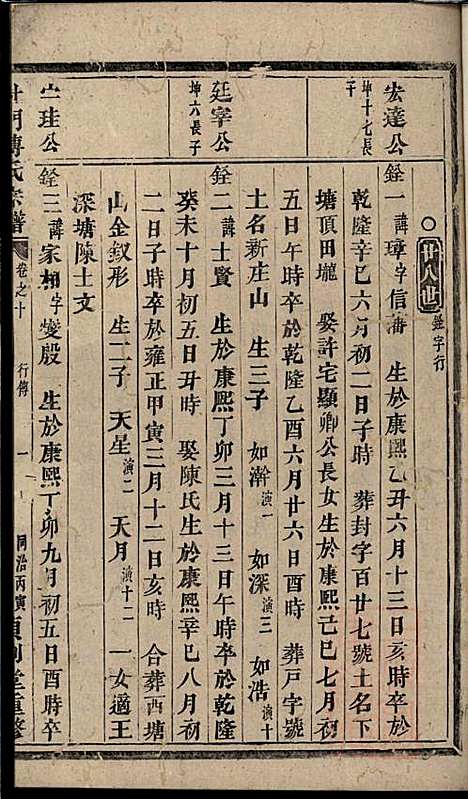 廿八世 銓字行
宏達公 坤十七長子
銓一 諱璋字信藩 生於康熙乙丑六月十三日亥時卒於
乾隆辛巳六月初二日子時 葬封字百廿七號土名下
塘頂田壠 娶許宅顯卿公長女生於康熙己巳七月初
五日午時卒於乾隆乙酉六月廿六日酉時 葬戸字號
土名新庄山 生三子 如澣演一 如深演三 如浩演十
廷宰公 坤六長子
銓二 諱士賢 生於康熙丁卯三月十三日午時卒於乾隆
癸未十月初五日丑時 娶陳氏生於康熙辛巳八月初
二日子時卒於雍正甲寅三月十二日亥時 合葬西塘
山金釵形 生二子 天星演二 天月演十二 一女適王
深塘陳士文
珪公
銓三 諱家相字燮殷 生於康熙丁卯九月初五日酉時卒
門傅氏宗譜 卷之十 行傳 一 同治丙寅